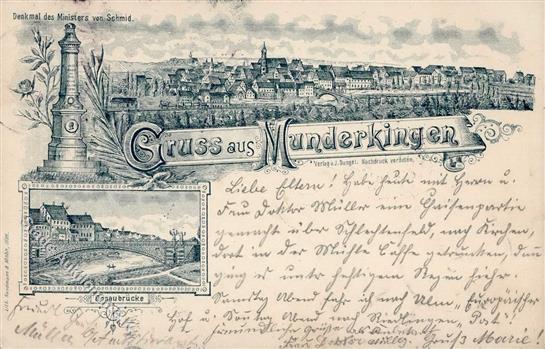 Denkmal des Ministers von Schmid.
Gruss aus Munderkingen
Verlag v. J. Dangel. Nachdruck verboten.
Liebe Eltern! Habe heute mit Herrn u.
Frau Doktor Müller eine Chaisenpartie
gemacht über Schlechtenfeld, nach Kirchen,
dort in der Mühle Caffe getrunken, dann
ging es unter heftigem Regen hieher.
Samstag Abend fahr ich nach Ulm "Europäischer
Hof" u. Sonntag Abend nach Riedlingen "Post".
Donaubrücke
freundliche Grüße
Müller
Frau Doktor
Gruß Marie!